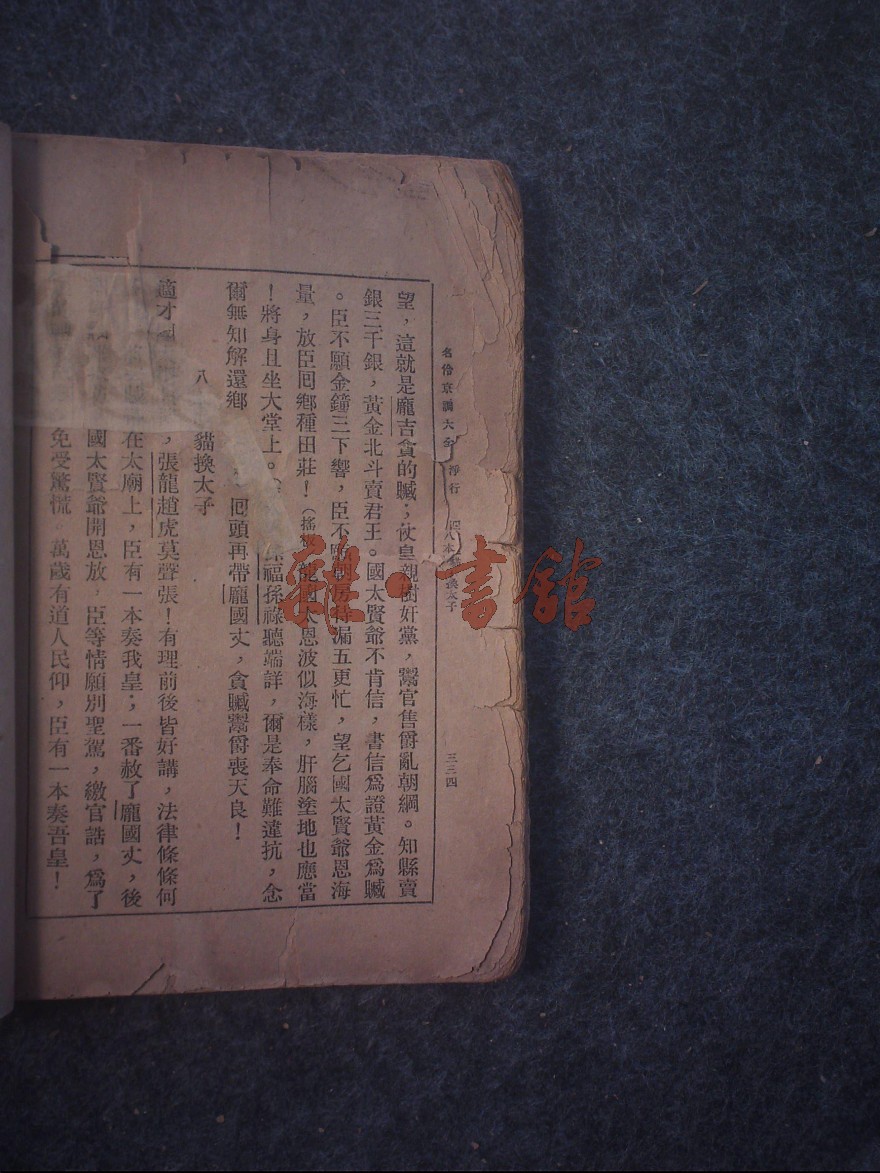 名伶京調大全 淨行 八本 貓換太子 三三四
望，這就是龐吉貪的贓；仗皇親樹奸黨，鬻官售爵亂朝綱。知縣賣
銀三千銀，黃金北斗賣君王。國太賢爺不肯信，書信爲證黃金爲贓
。臣不願金鐘三下響，臣不願朝房待漏五更忙，望乞國太賢爺恩海
量，放臣囘鄉種田莊！（搖板）龍國太恩波似海樣，肝腦塗地也應當
！將身且坐大堂上。福孫祿聽端詳，爾是奉命難違抗，念
爾無知解還鄉 囘頭再帶龐國丈，貪贓鬻爵喪天良！
八 貓換太子
適才，張龍趙虎莫聲張！有理前後皆好講，法律條條何
在太廟上，臣有一本奏我皇；一番赦了龐國丈，後
國太賢爺開恩放，臣等情願別聖駕，繳官誥，爲了
免受驚慌。萬歲有道人民仰，臣有一本奏吾皇！
雜·書館